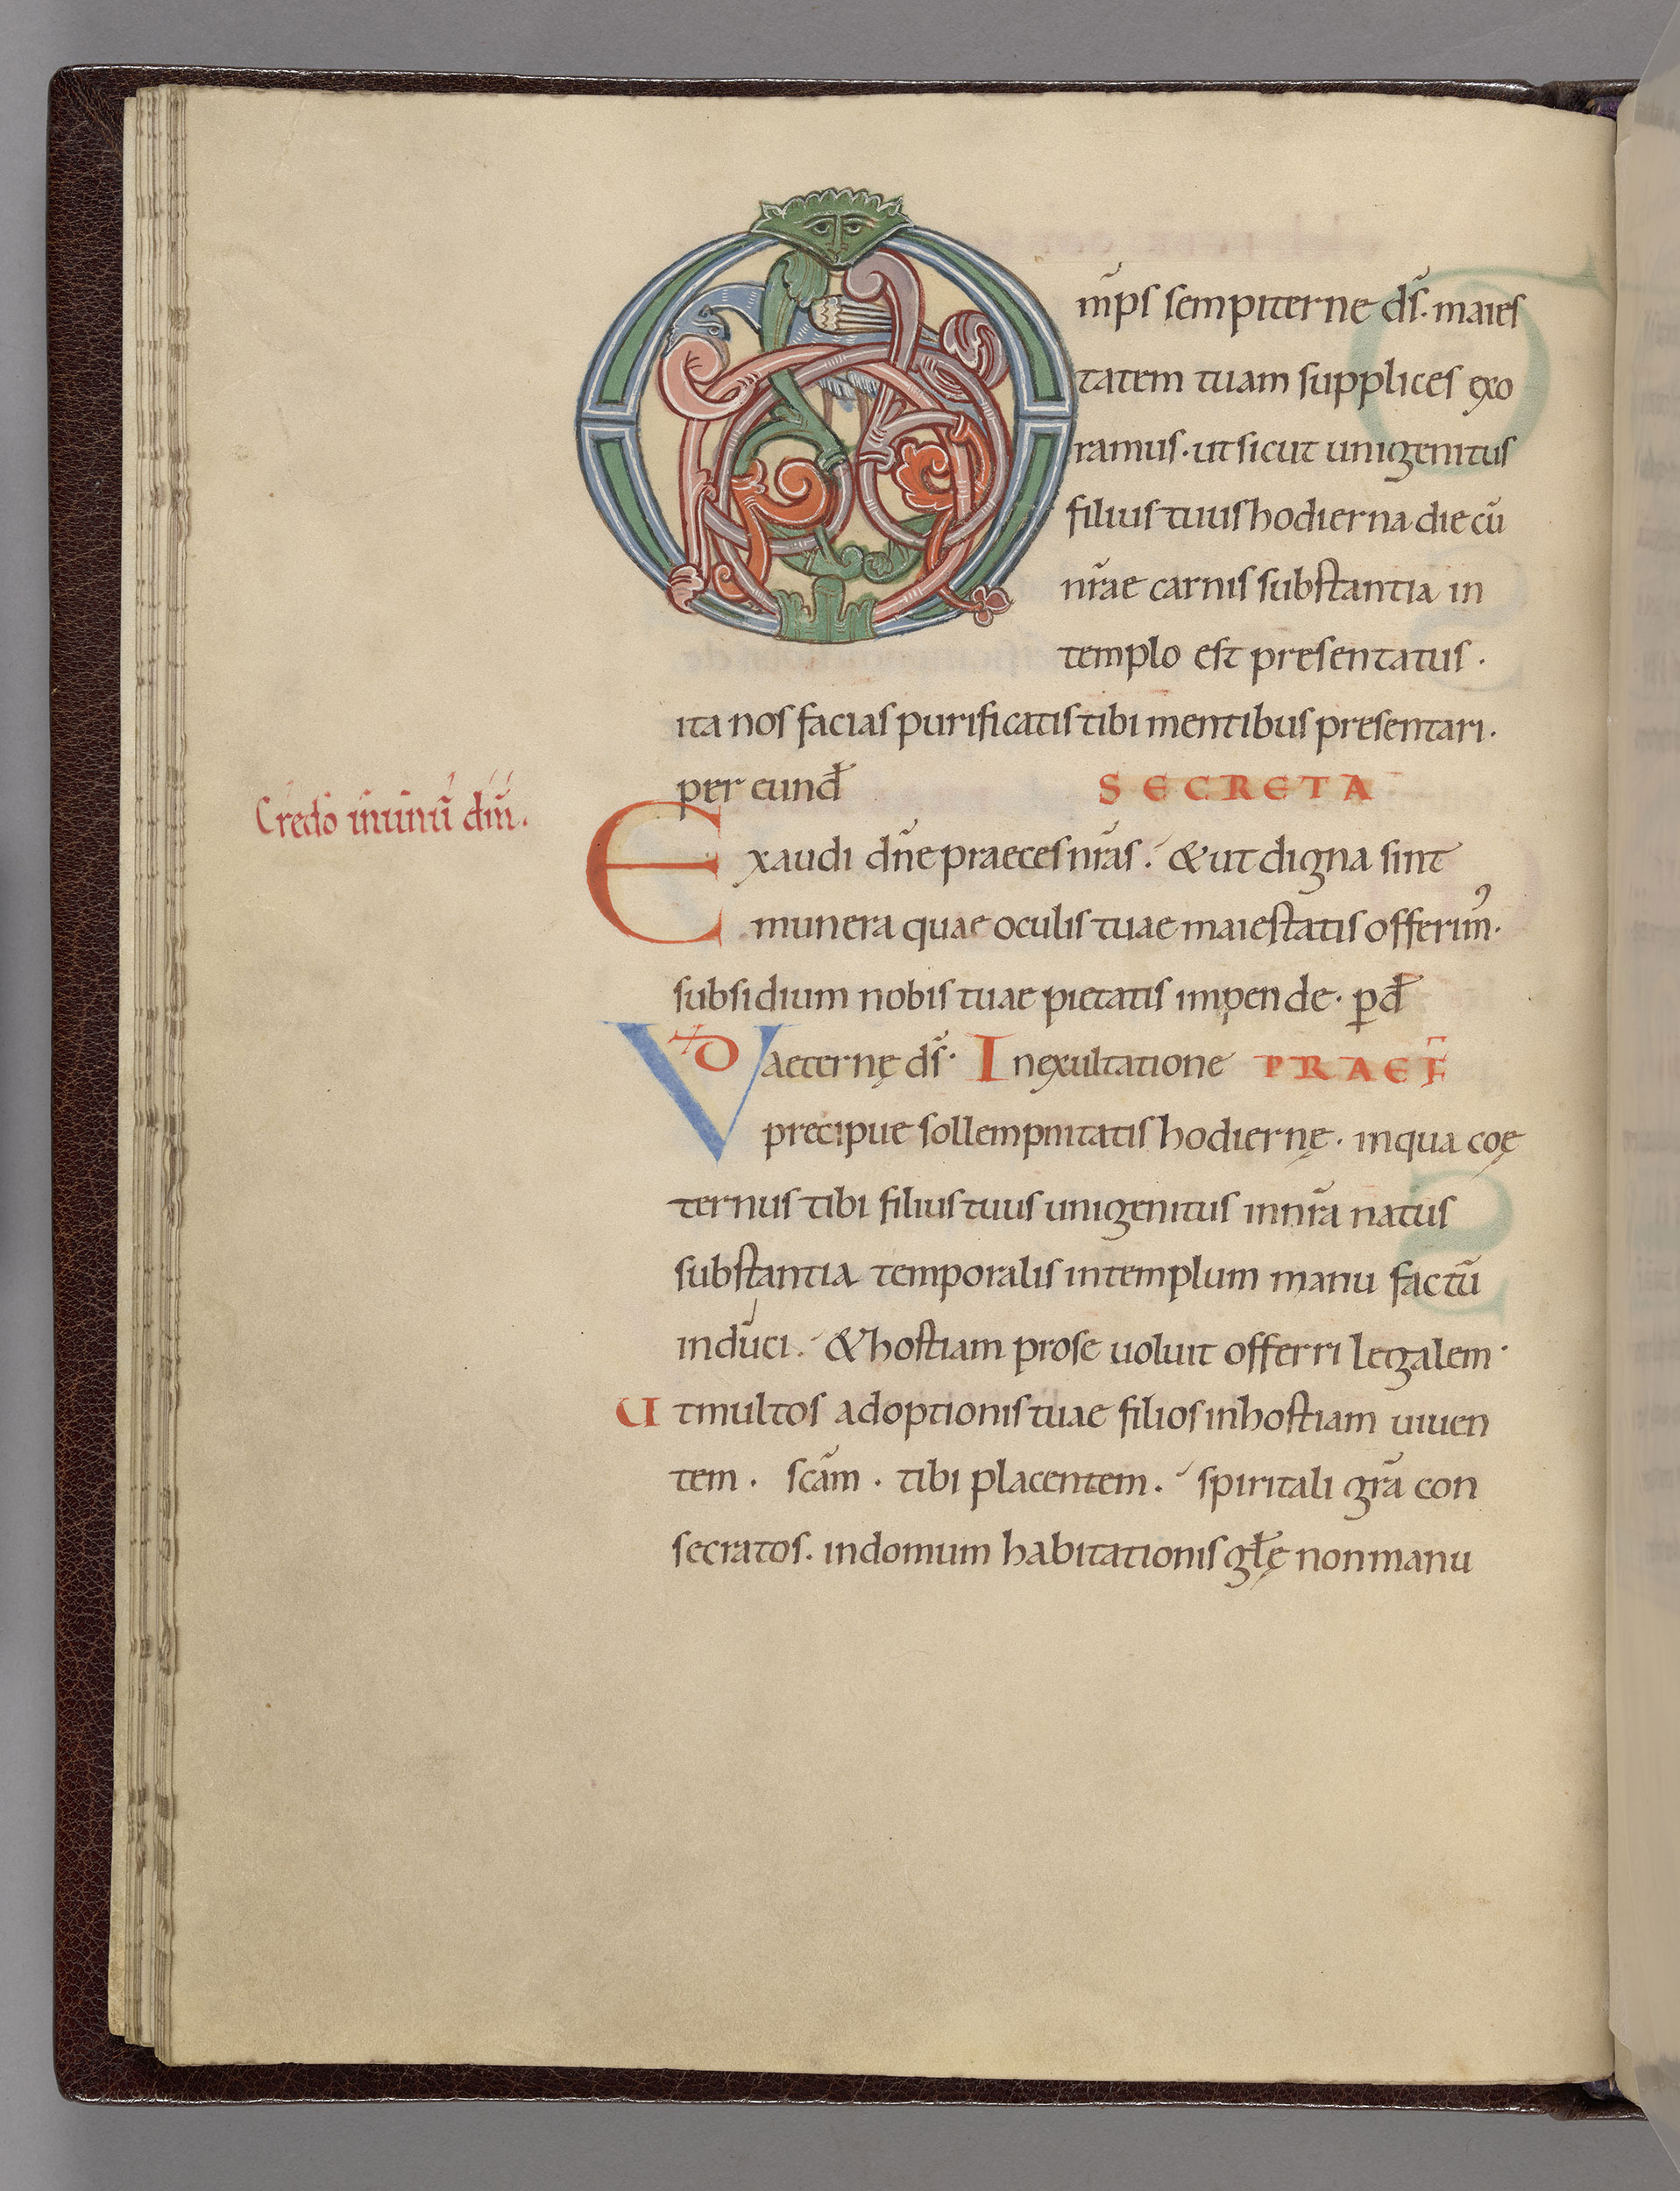 Om̄ps sempiterne ds̄. maies
tatem tuam supplices exo
ramus. ut sicut unigenitus
filius tuus hodierna die cū
nr̄ae carnis substantia in
templo est presentatus.
ita nos facias purificatis tibi mentibus presentari.
per eund̄ SECRETA
Credo in unū dm̄.
Exaudi dn̄e praeces nr̄as. & ut digna sint
munera quae oculis tuae maiestatis offerim᾿.
subsidium nobis tuae pietatis impende. p d̄
VD aeternę ds̄. In exultatione PRAEF̄
precipue sollempnitatis hodiernę. in qua coę
ternus tibi filius tuus unigenitus in nr̄a natus
substantia temporalis in templum manu factū
induci. & hostiam pro se uoluit offerri legalem.
Ut multos adoptionis tuae filios in hostiam uiuen
tem. scām. tibi placentem. spiritali gr̄a con
secratos. in domum habitationis gl̄ę non manu